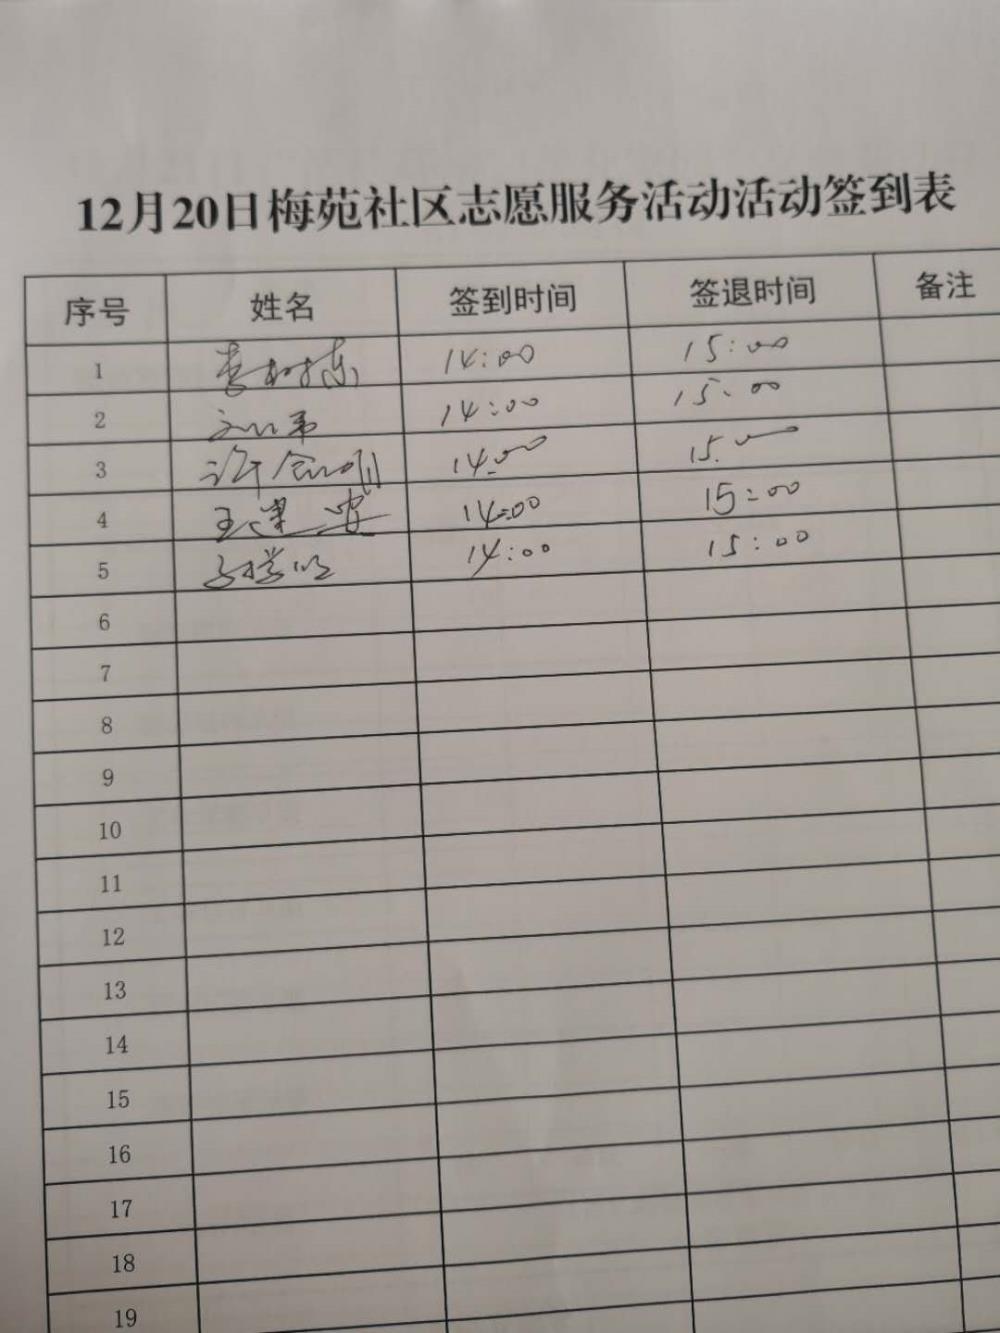 12月20日梅苑社区志愿服务活动活动签到表
序号 姓名 签到时间 签退时间 备注
1 李树栋 14:00 15:00
2 14:00 15:00
3 许 14:00 15:00
4 王建安 14:00 15:00
5 14:00 15:00
6
7
8
9
10
11
12
13
14
15
16
17
18
19